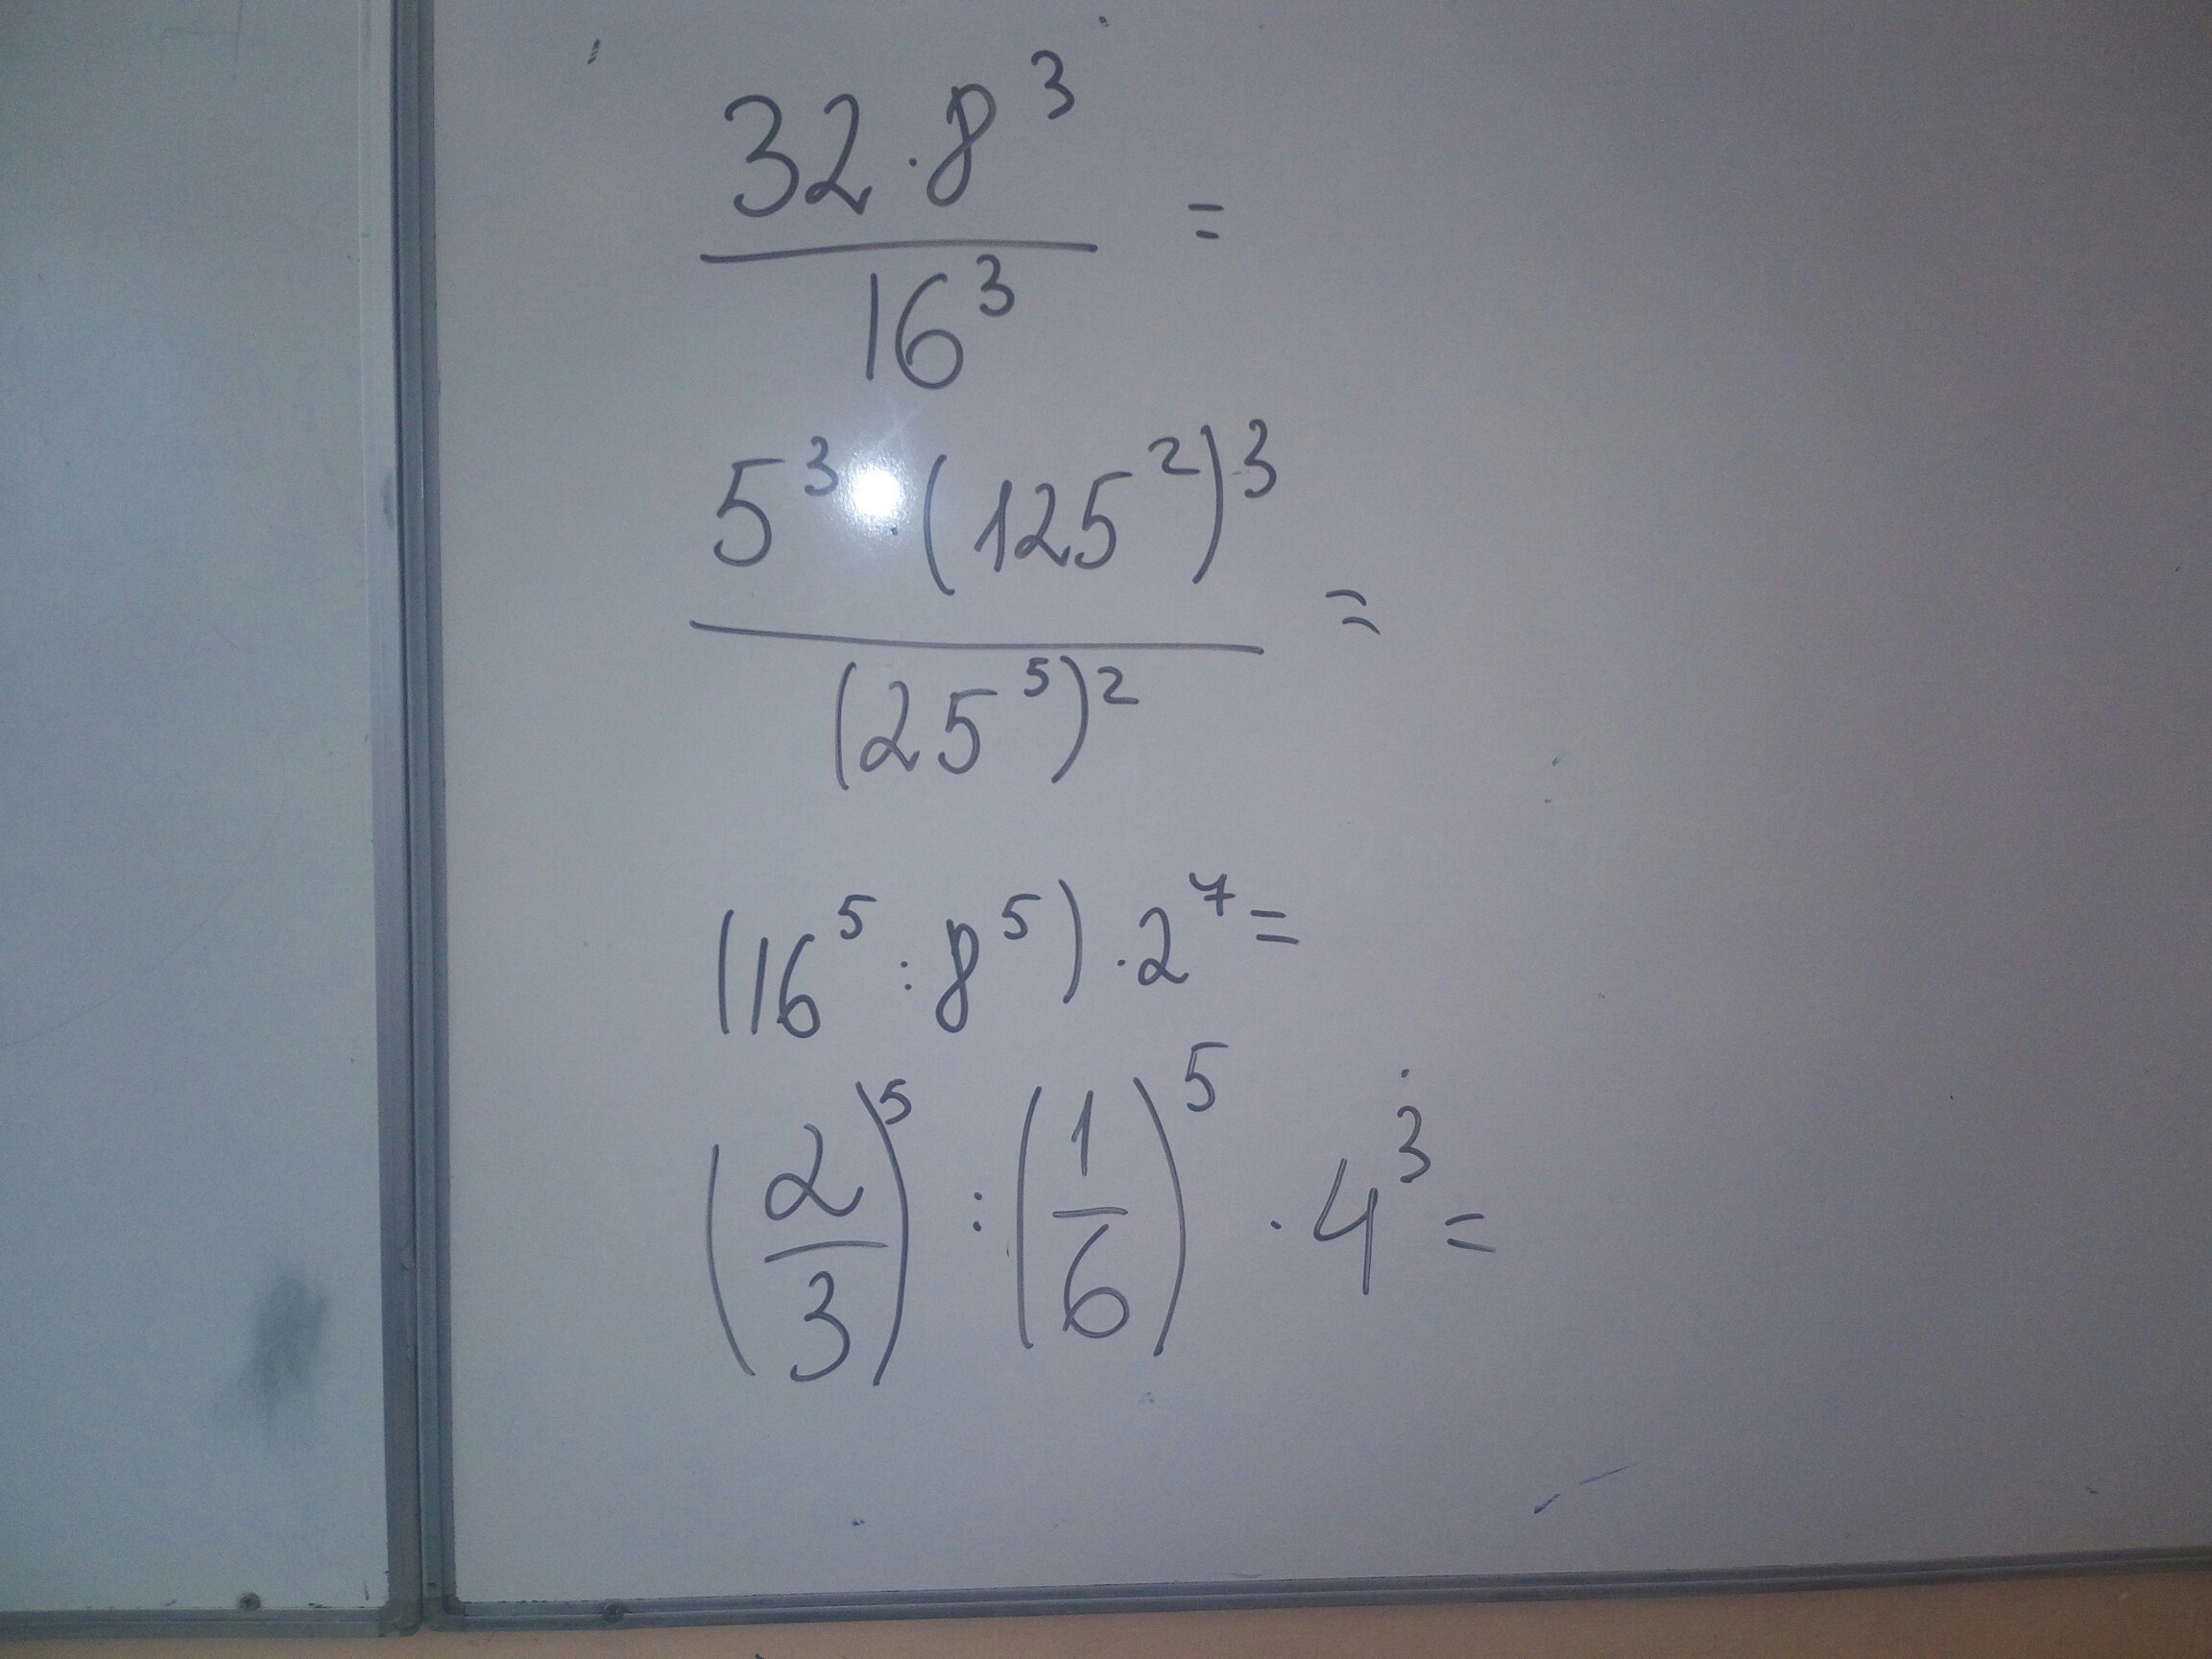 32 · 8³
16³ =
5³ · (125²)³
(25⁵)² =
(16⁵ : 8⁵) · 2⁷ =
(2/3)⁵ : (1/6)⁵ · 4³ =